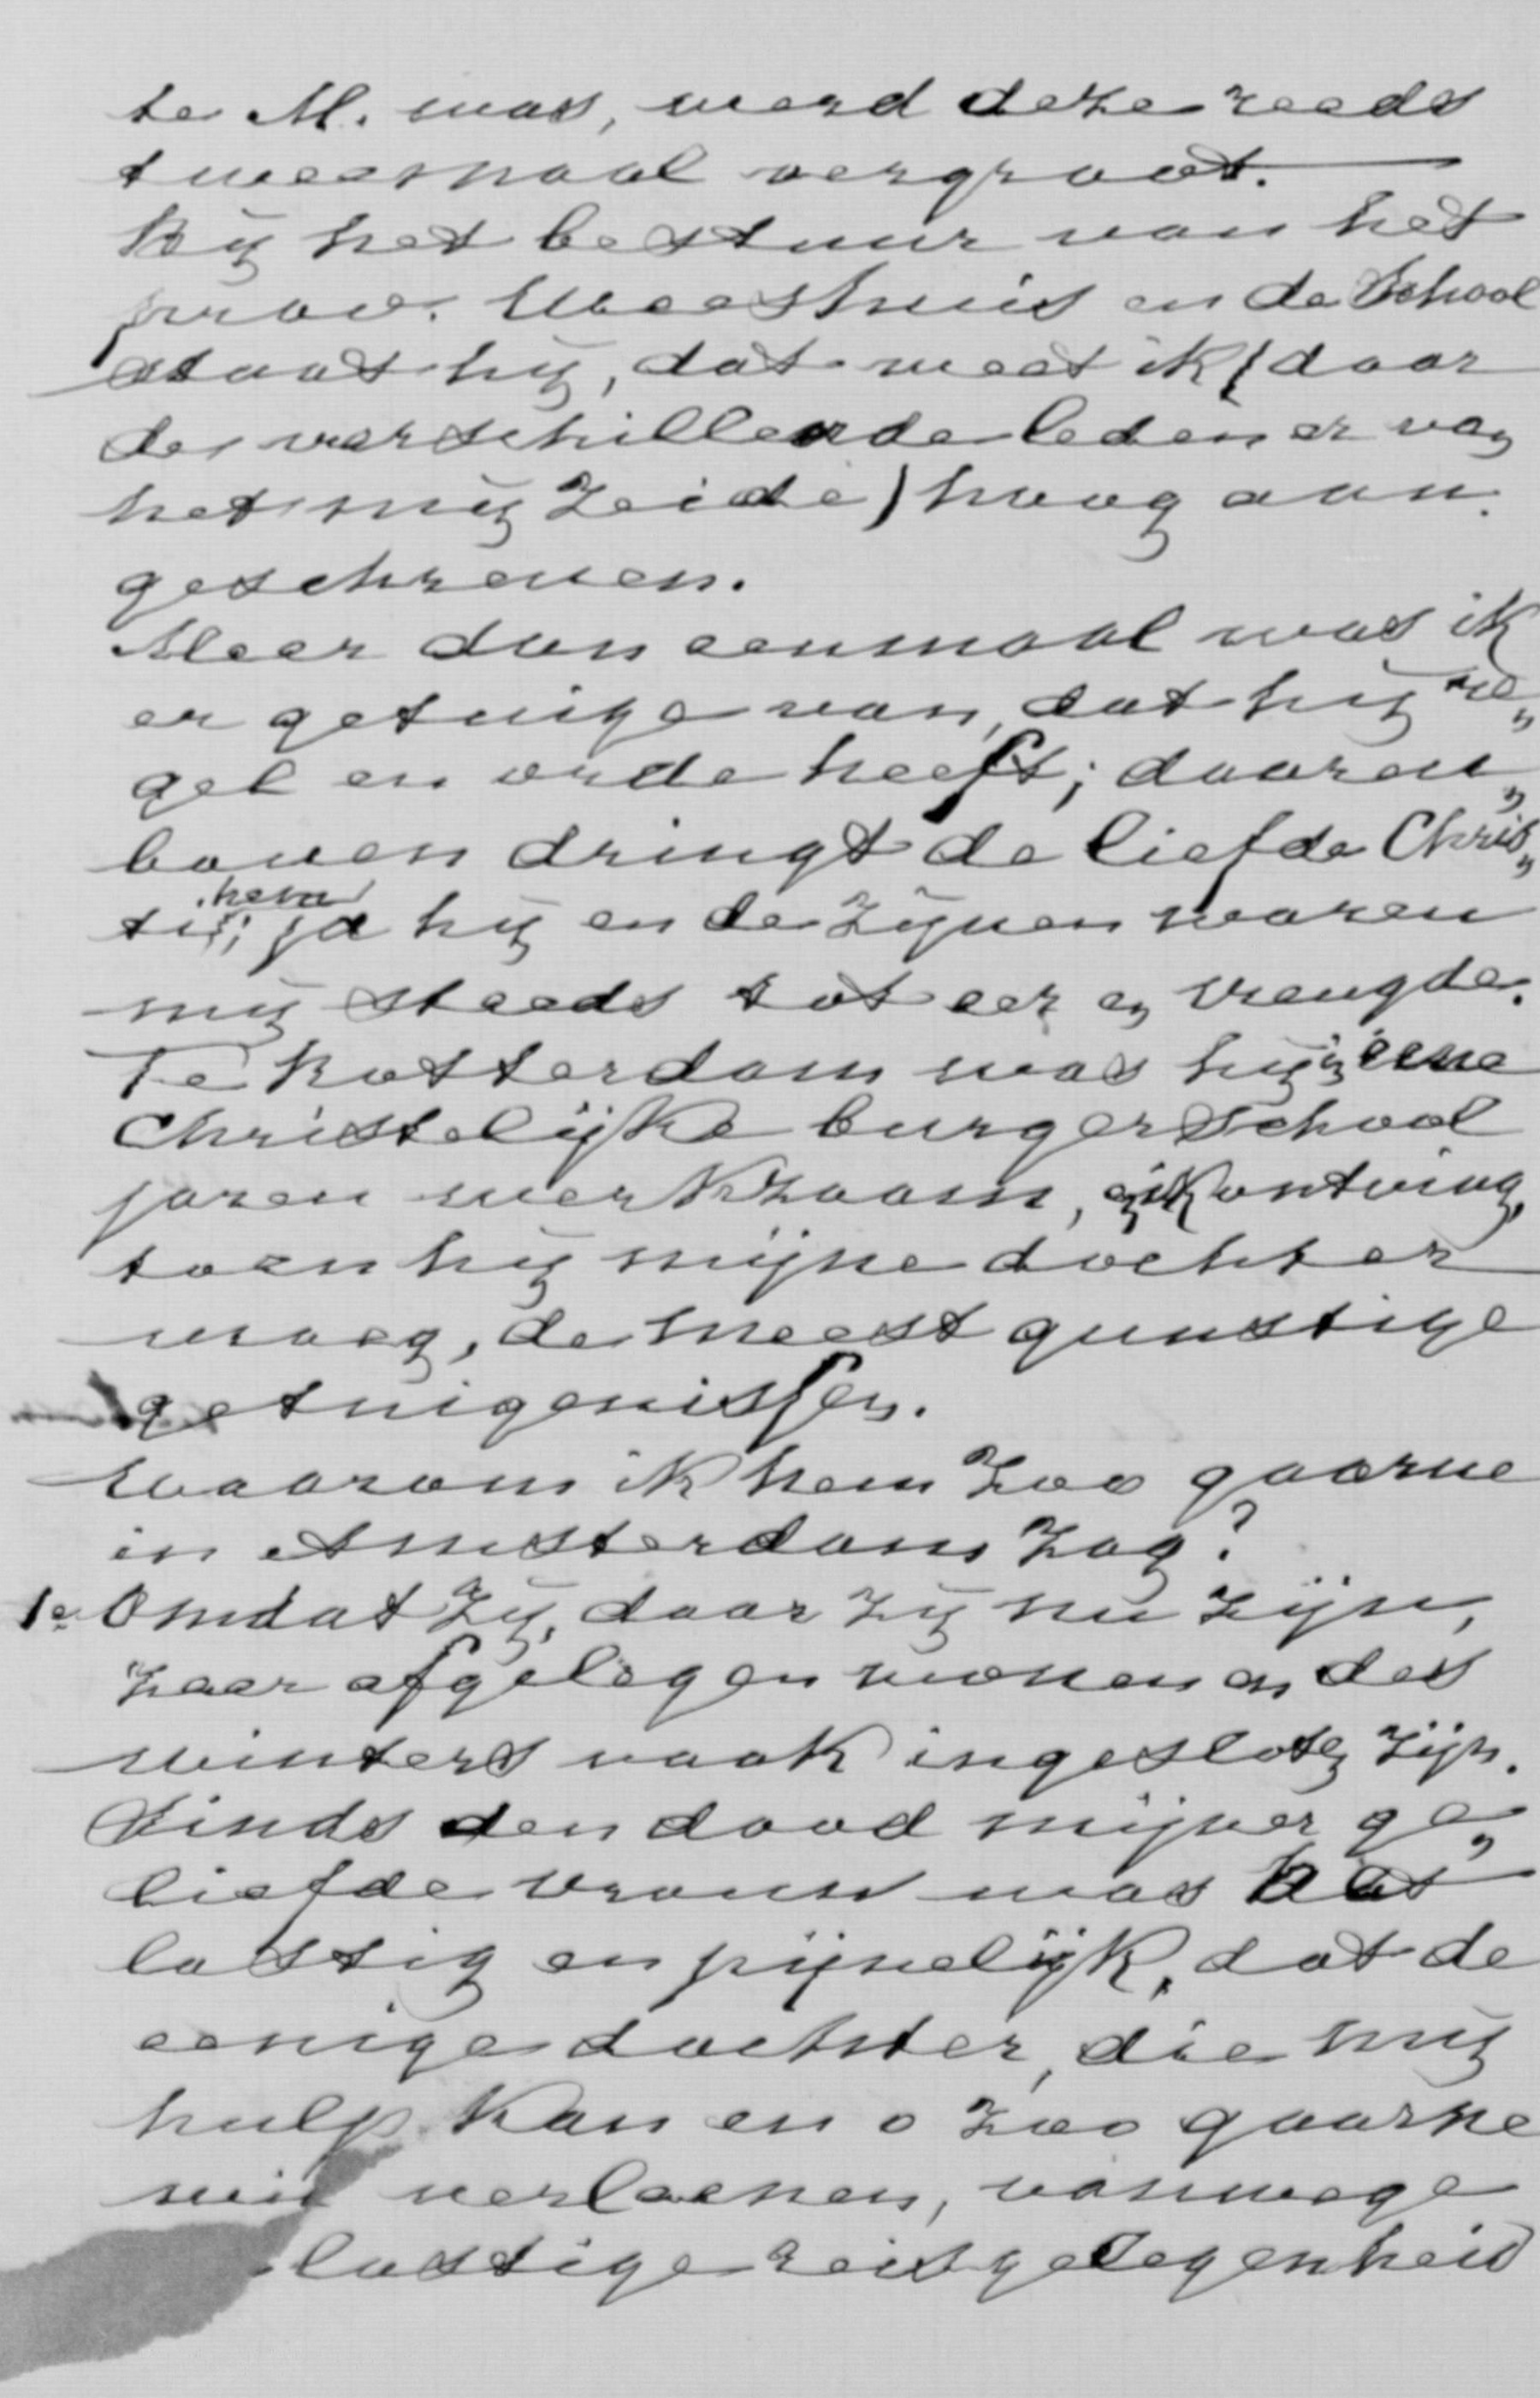 te M. was, werd deze reeds
tweemaal vergroot.
Bij het bestuur van het
prov. Weeshuis en de School
staat hij, dat weet ik (daar
de verschillende leden er van
het mij zeide) hoog aan-
geschreven.
Meer dan eenmaal was ik
er getuige van, dat hij re„
gel en orde heeft; daaren„
boven dringt de liefde Chris„
ti hem; ja hij en de zijnen waren
mij steeds tot eer en vreugde.
Te Rotterdam was hij in eene
Christelijke burgerschool
jaren werkzaam, en ik ontving,
toen hij mijne dochter
vroeg, de meest gunstige
getuigenissen.
Waarom ik hem zoo gaarne
in Amsterdam zag?
1e Omdat zij, daar zij nu zijn,
zeer afgelegen wonen en des
winters vaak ingesloten zijn.
Sinds den dood mijner ge„
liefde vrouw was het
lastig en pijnelijk, dat de
eenige dochter, die mij
hulp kan en o zoo gaarne
wil verleenen, vanwege
lastige reisgelegenheid